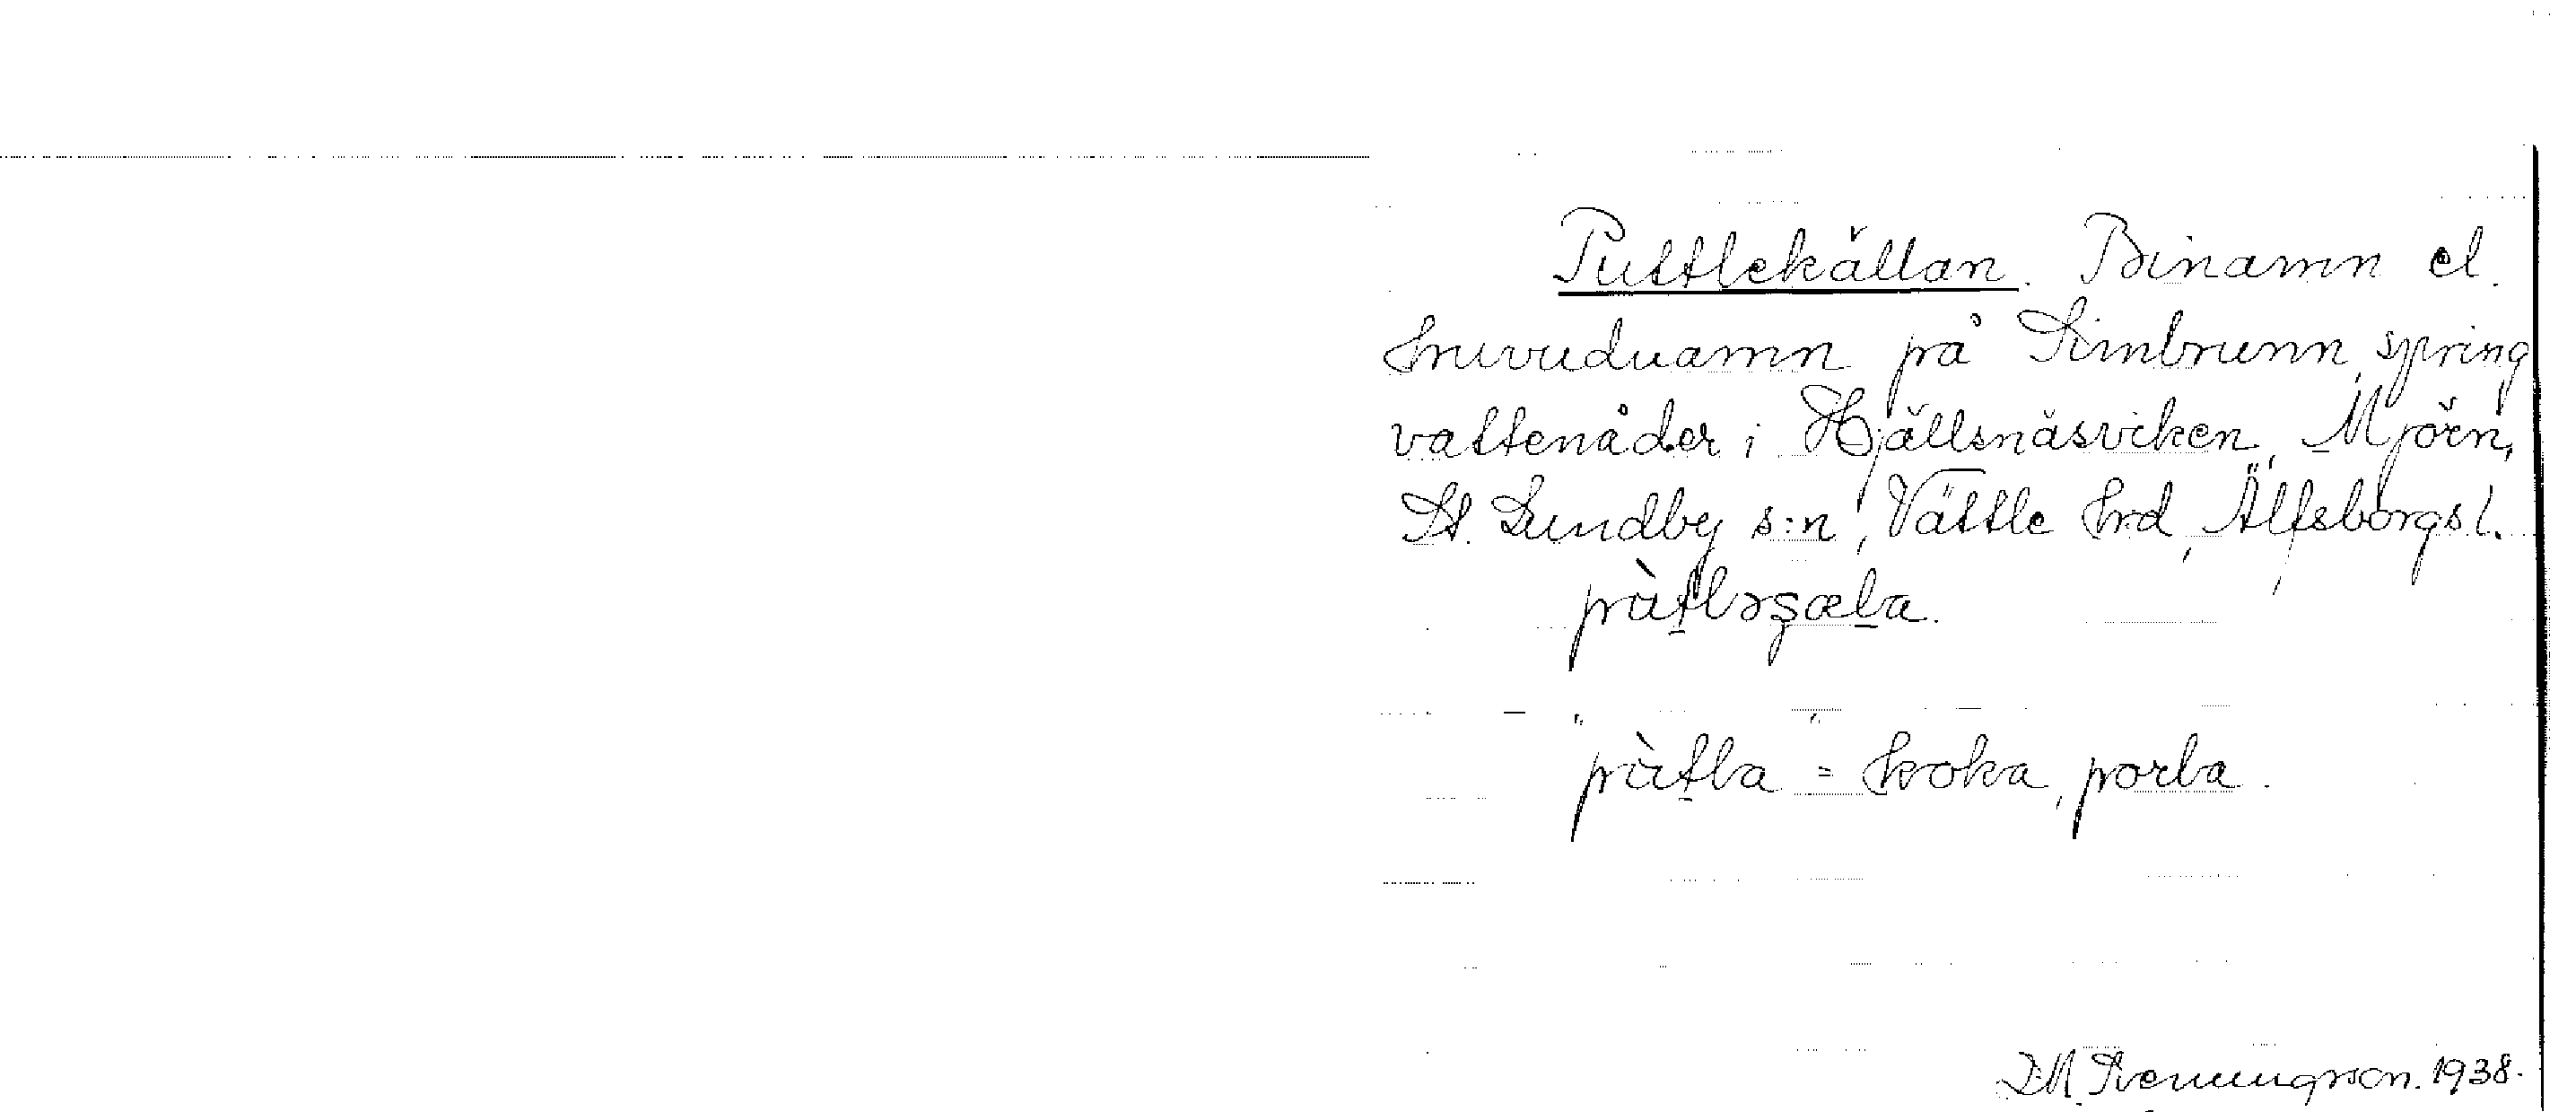 Puttlekällan. Binamn el.
huvudnamn på Simbrunn, spring
vattenåder i Hjällsnäsviken, Mjörn,
St. Lundby s:n, Vättle hrd, Älfsborgs l.
"pùtla" = koka, porla.
1938.